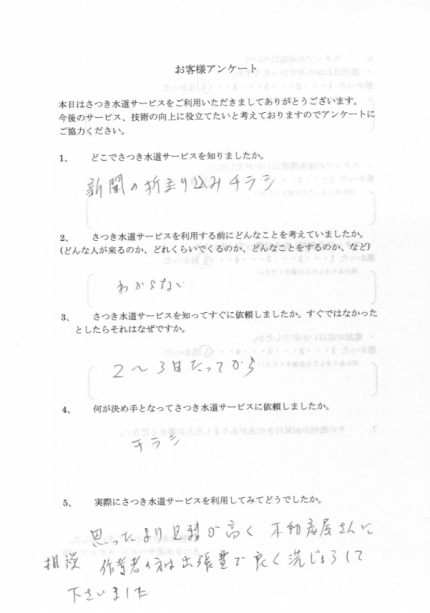 お客様アンケート
本日はさつき水道サービスをご利用いただきましてありがとうございます。
今後のサービス、技術の向上に役立てたいと考えておりますのでアンケートに
ご協力ください。
1、 どこでさつき水道サービスを知りましたか。
新聞の折り込みチラシ
2、 さつき水道サービスを利用する前にどんなことを考えていましたか。
(どんな人が来るのか、どれくらいでくるのか、どんなことをするのか、など)
わからない
3、 さつき水道サービスを知ってすぐに依頼しましたか。すぐではなかった
としたらそれはなぜですか。
2〜3日たってから
4、 何が決め手となってさつき水道サービスに依頼しましたか。
チラシ
5、 実際にさつき水道サービスを利用してみてどうでしたか。
思ったより 高く 不動産屋さんに
相談 作業者の方は出張費で良く して
下さいました